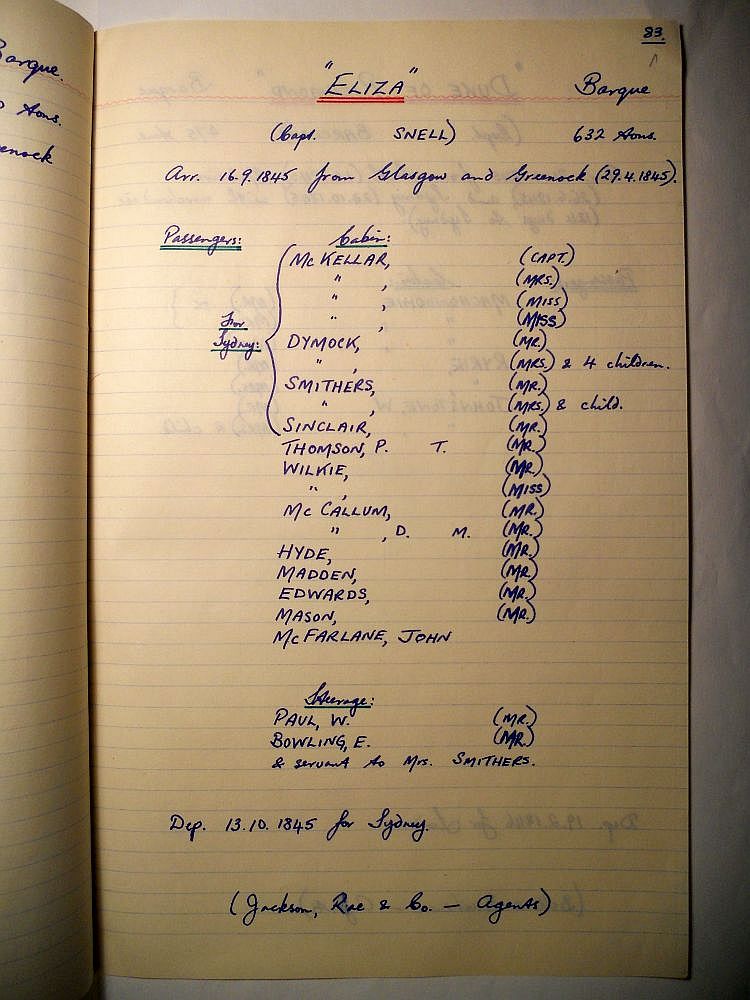 Barque.
Tons.
83.
"ELIZA" Barque
(Capt. SNELL) 632 Tons.
Arr. 16.9.1845 from Glasgow and Greenock (29.4.1845).
Passengers: Cabin:
McKELLAR, (CAPT.)
" , (MRS.)
" , (MISS)
" , (MISS)
For
Sydney:
DYMOCK, (MR.)
" , (MRS.) & 4 children.
SMITHERS, (MR.)
" , (MRS.) & child.
SINCLAIR, (MR.)
THOMSON, P. T. (MR.)
WILKIE, (MR.)
" , (MISS)
McCALLUM, (MR.)
" , D. M. (MR.)
HYDE, (MR.)
MADDEN, (MR.)
EDWARDS, (MR.)
MASON, (MR.)
McFARLANE, JOHN
Steerage:
PAUL, W. (MR.)
BOWLING, E. (MR.)
& servant to Mrs. SMITHERS.
Dep. 13.10.1845 for Sydney.
(Jackson, Rae & Co. — Agents)